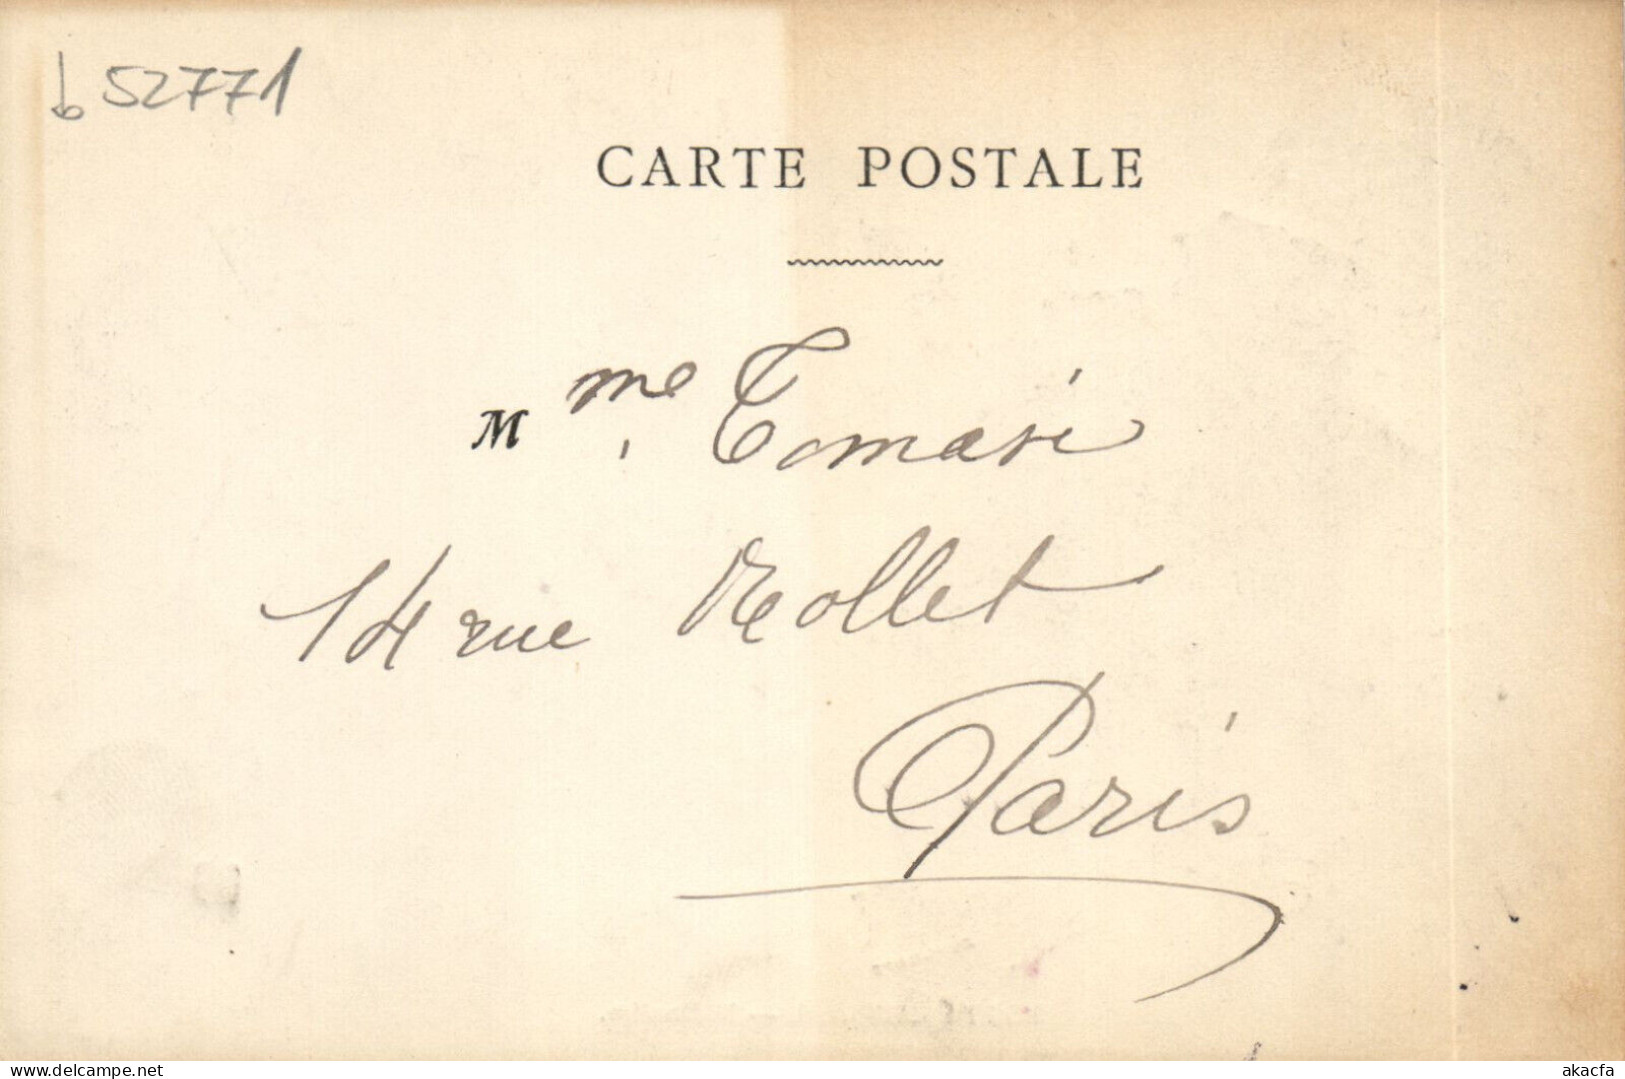 b52771
CARTE POSTALE
Mme Tomasi
14 rue Mollet
Paris
delcampe.net
akacfa